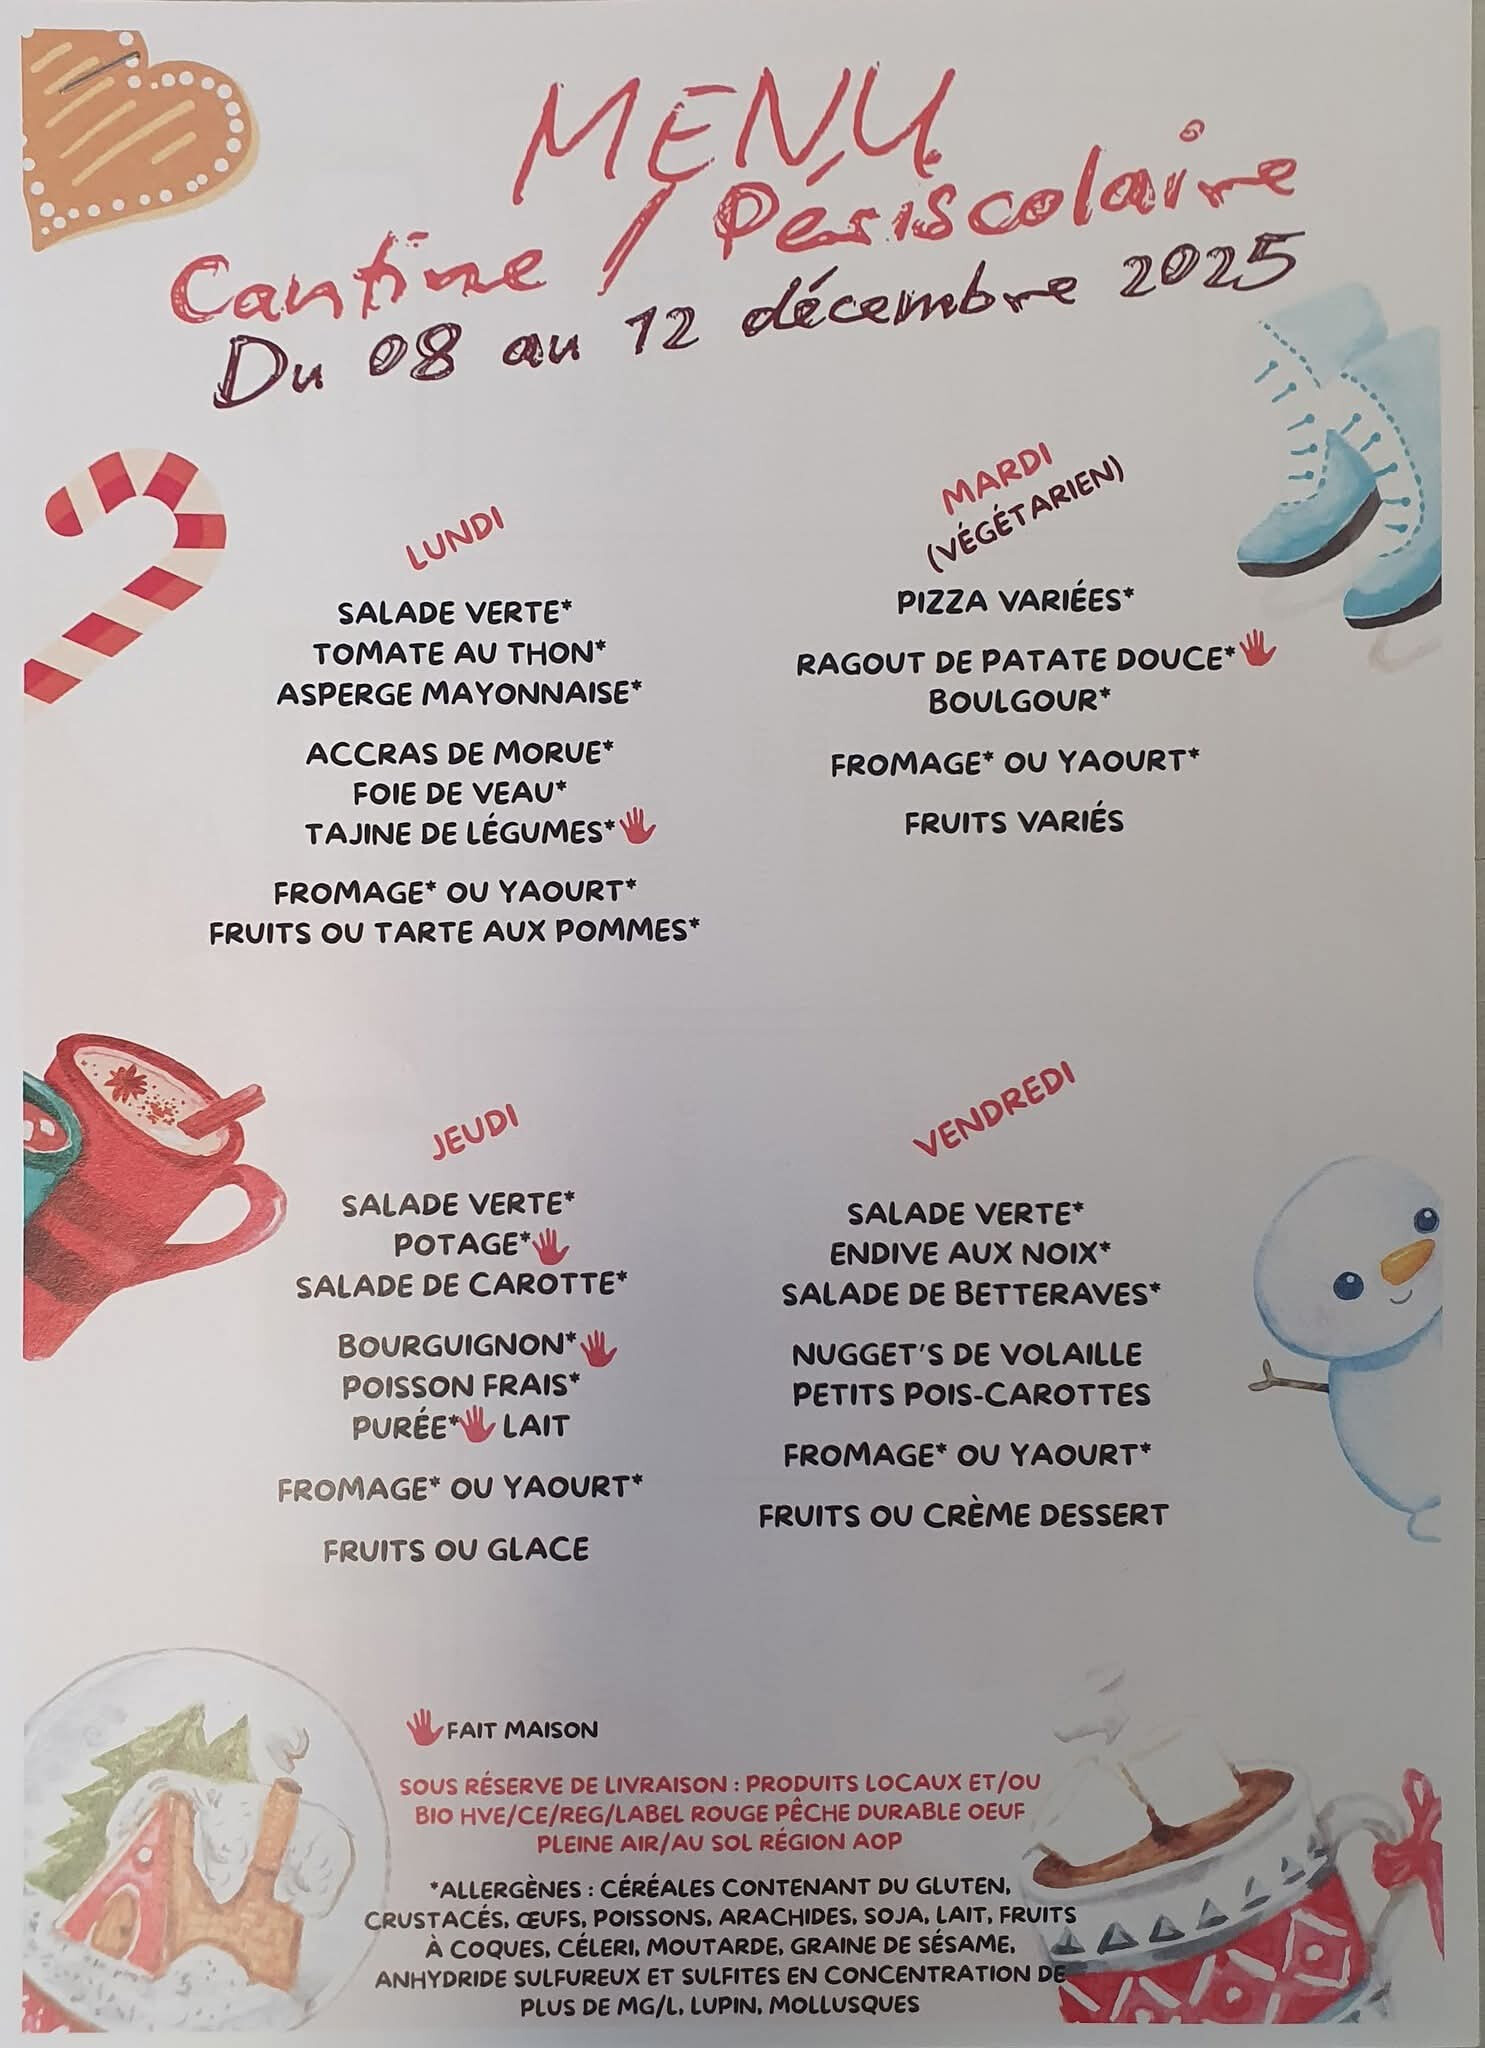 MENU
Cantine / Périscolaire
Du 08 au 12 décembre 2025
LUNDI
SALADE VERTE*
TOMATE AU THON*
ASPERGE MAYONNAISE*
ACCRAS DE MORUE*
FOIE DE VEAU*
TAJINE DE LÉGUMES*
FROMAGE* OU YAOURT*
FRUITS OU TARTE AUX POMMES*
MARDI
(VÉGÉTARIEN)
PIZZA VARIÉES*
RAGOUT DE PATATE DOUCE*
BOULGOUR*
FROMAGE* OU YAOURT*
FRUITS VARIÉS
JEUDI
SALADE VERTE*
POTAGE*
SALADE DE CAROTTE*
BOURGUIGNON*
POISSON FRAIS*
PURÉE* LAIT
FROMAGE* OU YAOURT*
FRUITS OU GLACE
VENDREDI
SALADE VERTE*
ENDIVE AUX NOIX*
SALADE DE BETTERAVES*
NUGGET'S DE VOLAILLE
PETITS POIS-CAROTTES
FROMAGE* OU YAOURT*
FRUITS OU CRÈME DESSERT
FAIT MAISON
SOUS RÉSERVE DE LIVRAISON : PRODUITS LOCAUX ET/OU
BIO HVE/CE/REG/LABEL ROUGE PÊCHE DURABLE OEUF
PLEINE AIR/AU SOL RÉGION AOP
*ALLERGÈNES : CÉRÉALES CONTENANT DU GLUTEN,
CRUSTACÉS, ŒUFS, POISSONS, ARACHIDES, SOJA, LAIT, FRUITS
À COQUES, CÉLERI, MOUTARDE, GRAINE DE SÉSAME,
ANHYDRIDE SULFUREUX ET SULFITES EN CONCENTRATION DE
PLUS DE MG/L, LUPIN, MOLLUSQUES